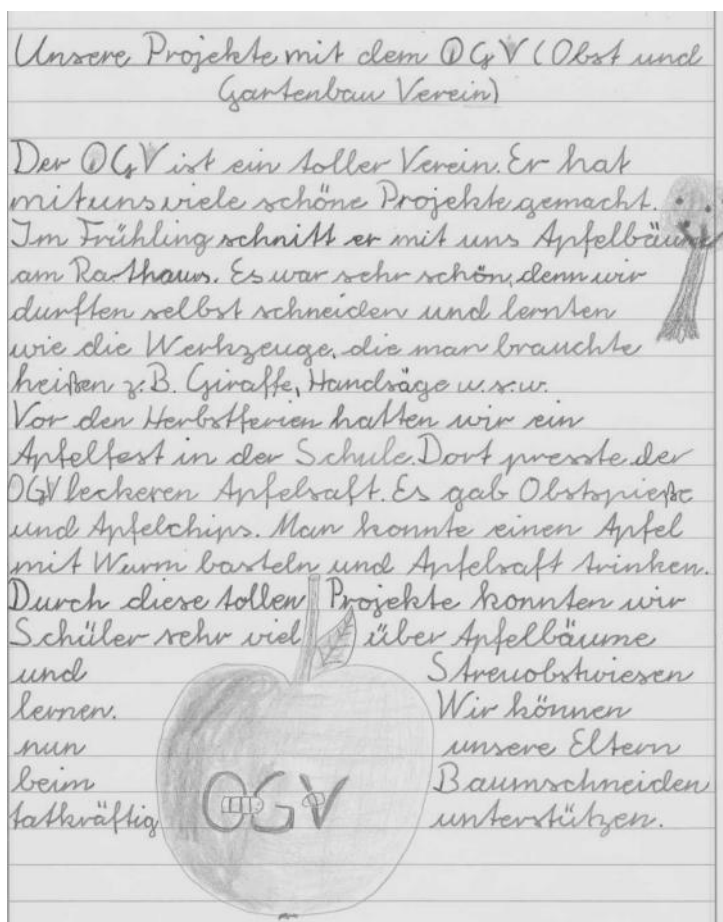 Unsere Projekte mit dem OGV (Obst und
Gartenbau Verein)
Der OGV ist ein toller Verein. Er hat
mit uns viele schöne Projekte gemacht.
Im Frühling schnitt er mit uns Apfelbäume
am Rathaus. Es war sehr schön, denn wir
durften selbst schneiden und lernten
wie die Werkzeuge, die man brauchte
heißen z.B. Giraffe, Handsäge u.s.w.
Vor den Herbstferien hatten wir ein
Apfelfest in der Schule. Dort presste der
OGV leckeren Apfelsaft. Es gab Obstspieße
und Apfelchips. Man konnte einen Apfel
mit Wurm basteln und Apfelsaft trinken.
Durch diese tollen Projekte konnten wir
Schüler sehr viel über Apfelbäume
und Streuobstwiesen
lernen. Wir können
nun unsere Eltern
beim Baumschneiden
tatkräftig unterstützen.
OGV